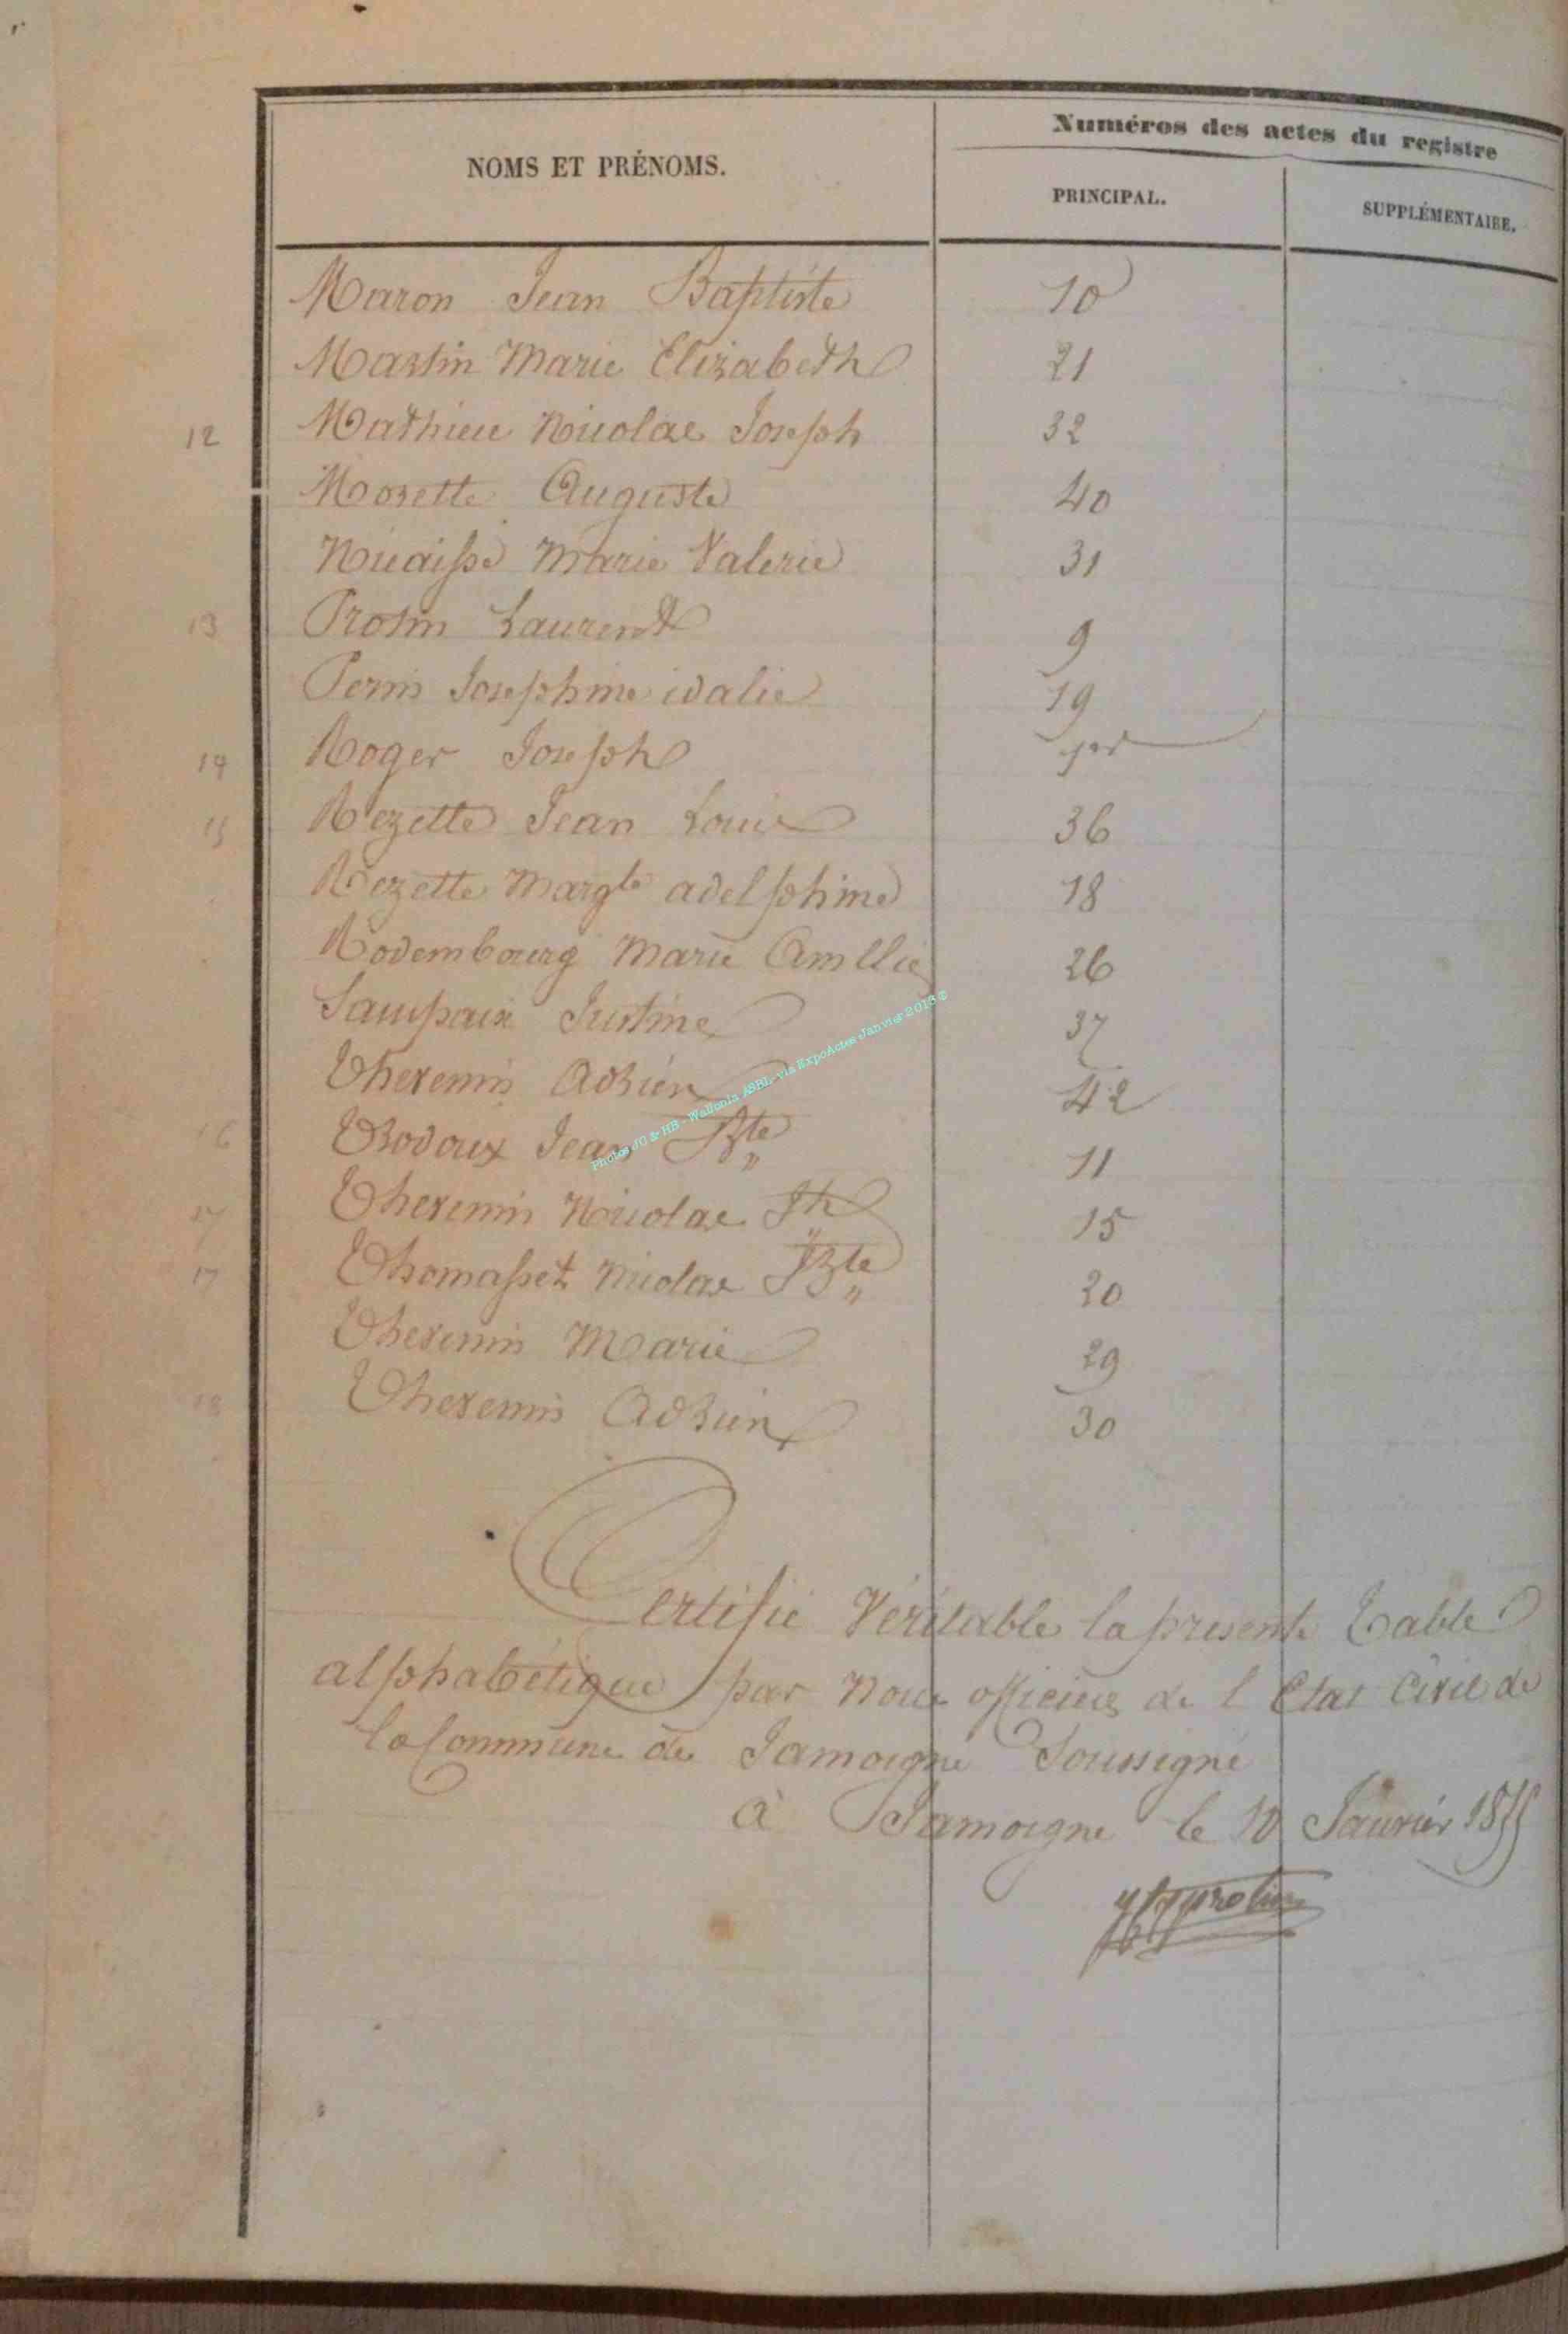 NOMS ET PRÉNOMS.
Numéros des actes du registre
PRINCIPAL.
SUPPLÉMENTAIRE.
Maron Jean Baptiste 10
Martin Marie Elizabeth 21
12 Mathieu Nicolas Joseph 32
Morette Auguste 40
Nicaisse Marie Valerie 31
13 Protin Laurent 9
Perin Josephine idalie 19
14 Roger Joseph 1er
15 Rezette Jean Louis 36
Rezette Margte adelphine 18
Rodembourg Marie Amllie 26
Saupaix Justine 37
Theremin Adrien 42
16 Thodoux Jean Bte 11
17 Theremin Nicolas Jh 15
17 Thomasset Nicolas JBte 20
Theremin Marie 29
18 Theremin Adrien 30
Certifié Véritable la presente Table
alphabétique par Nous officier de l Etat Civil de
la Commune de Jamoigne Soussigné
à Jamoigne le 10 Janvier 1855
Photos JG & HB - Wallonia ASBL, via ExpoActes Janvier 2013 ©